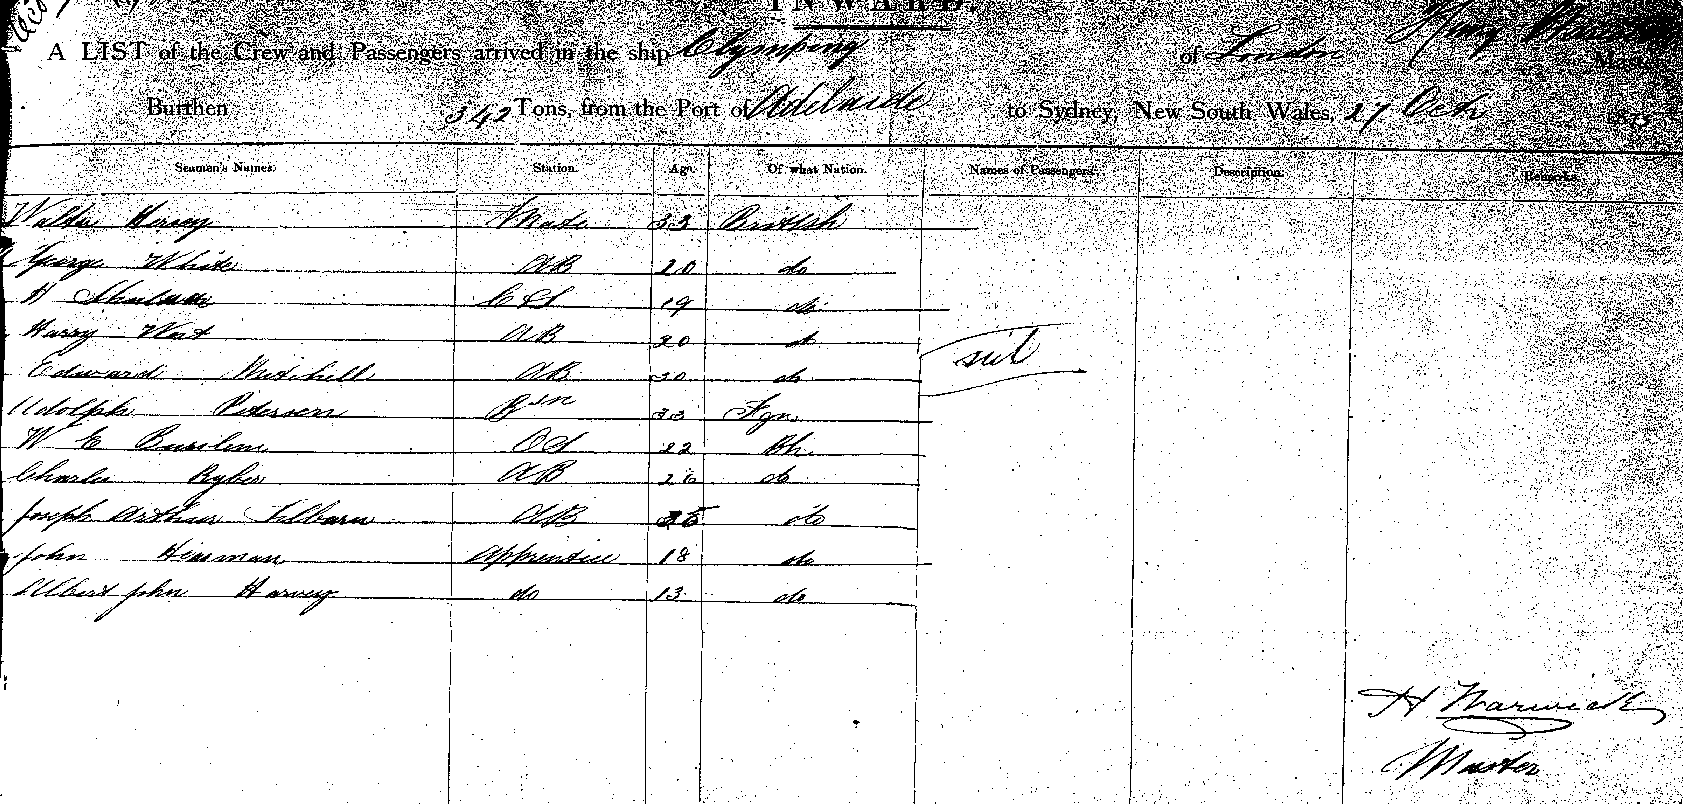 INWARD.
A LIST of the Crew and Passengers arrived in the ship Clymping of London Henry Warwick Master
Burthen 342 Tons, from the Port of Adelaide to Sydney, New South Wales, 27 Oct
Seaman's Names. Station. Age. Of what Nation. Names of Passengers. Description. Remarks.
Walter Hersey Mate 33 British
George White AB 20 do
H 19 do
Harry West AB 20 do
Edward Mitchell AB 30 do
nil
Adolph Petersen 33 Fgn
W C OS 22 Bh
Charles AB 26 do
Joseph Arthur AB 25 do
John Hinsman Apprentice 18 do
Albert John Harvey do 13 do
H Warwick
Master